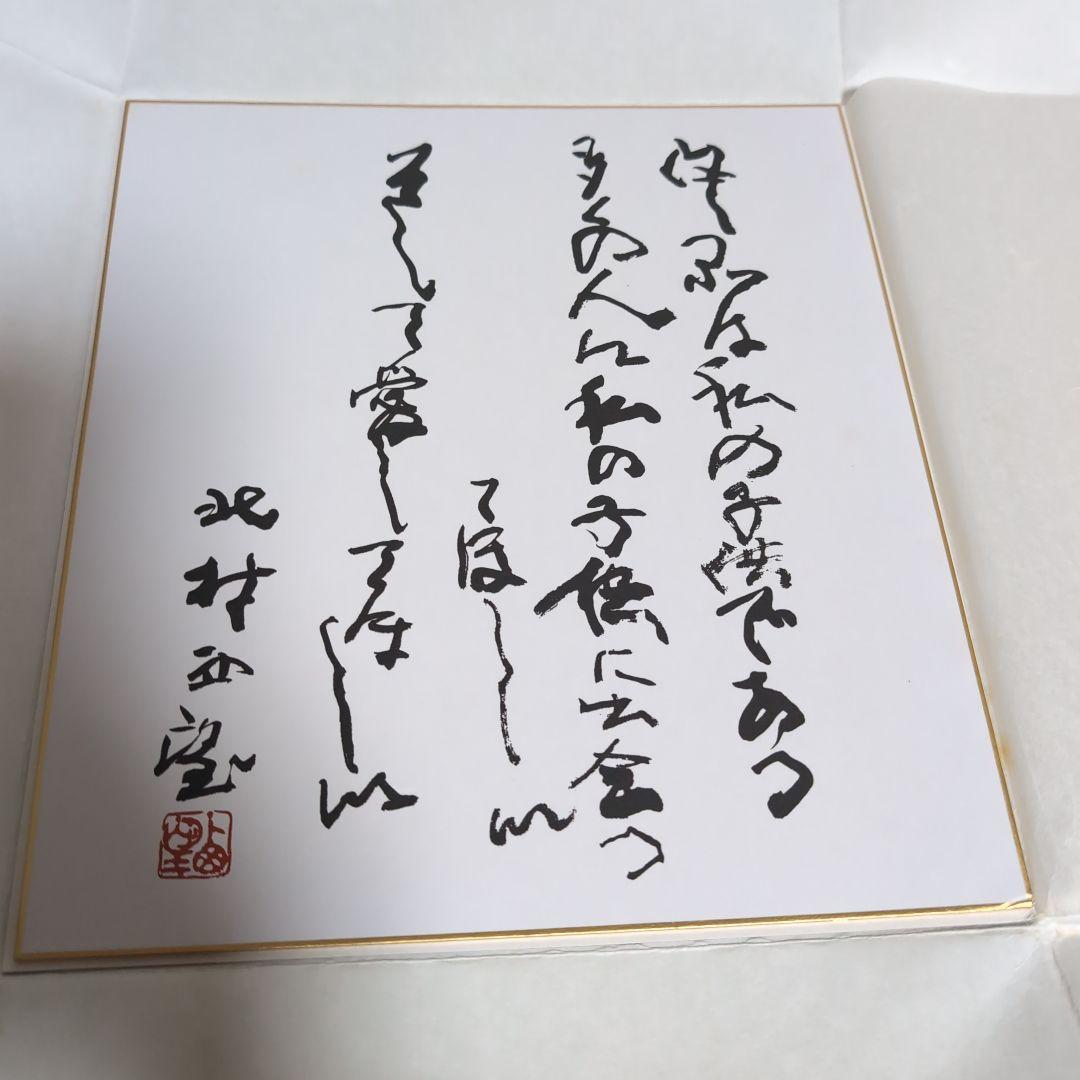 作品は私の子供である
多くの人に私の子供に出会つ
てほしい
そして愛してほしい
北村西望
西望